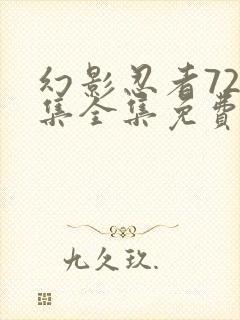 幻影忍者72
集全集免费
九久玖.